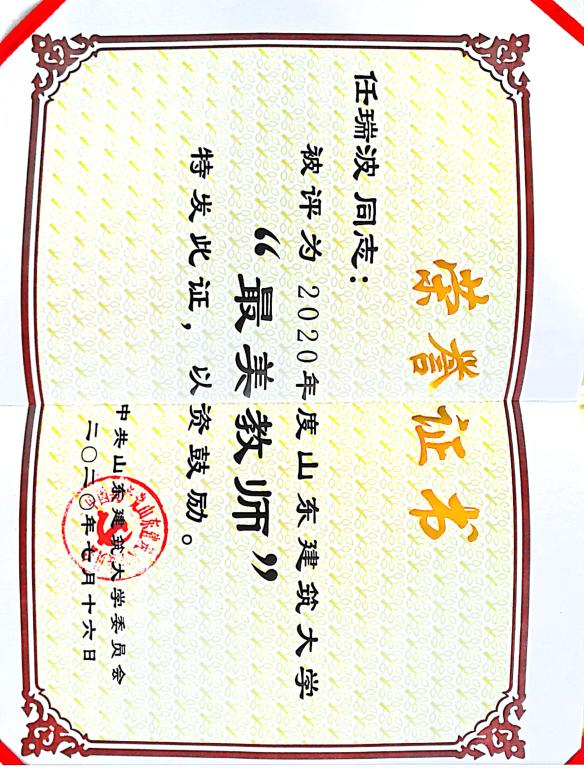 荣誉证书
任瑞波 同志：
被评为2020年度山东建筑大学
“最美教师”
特发此证，以资鼓励。
中共山东建筑大学委员会
二〇二〇年七月十六日